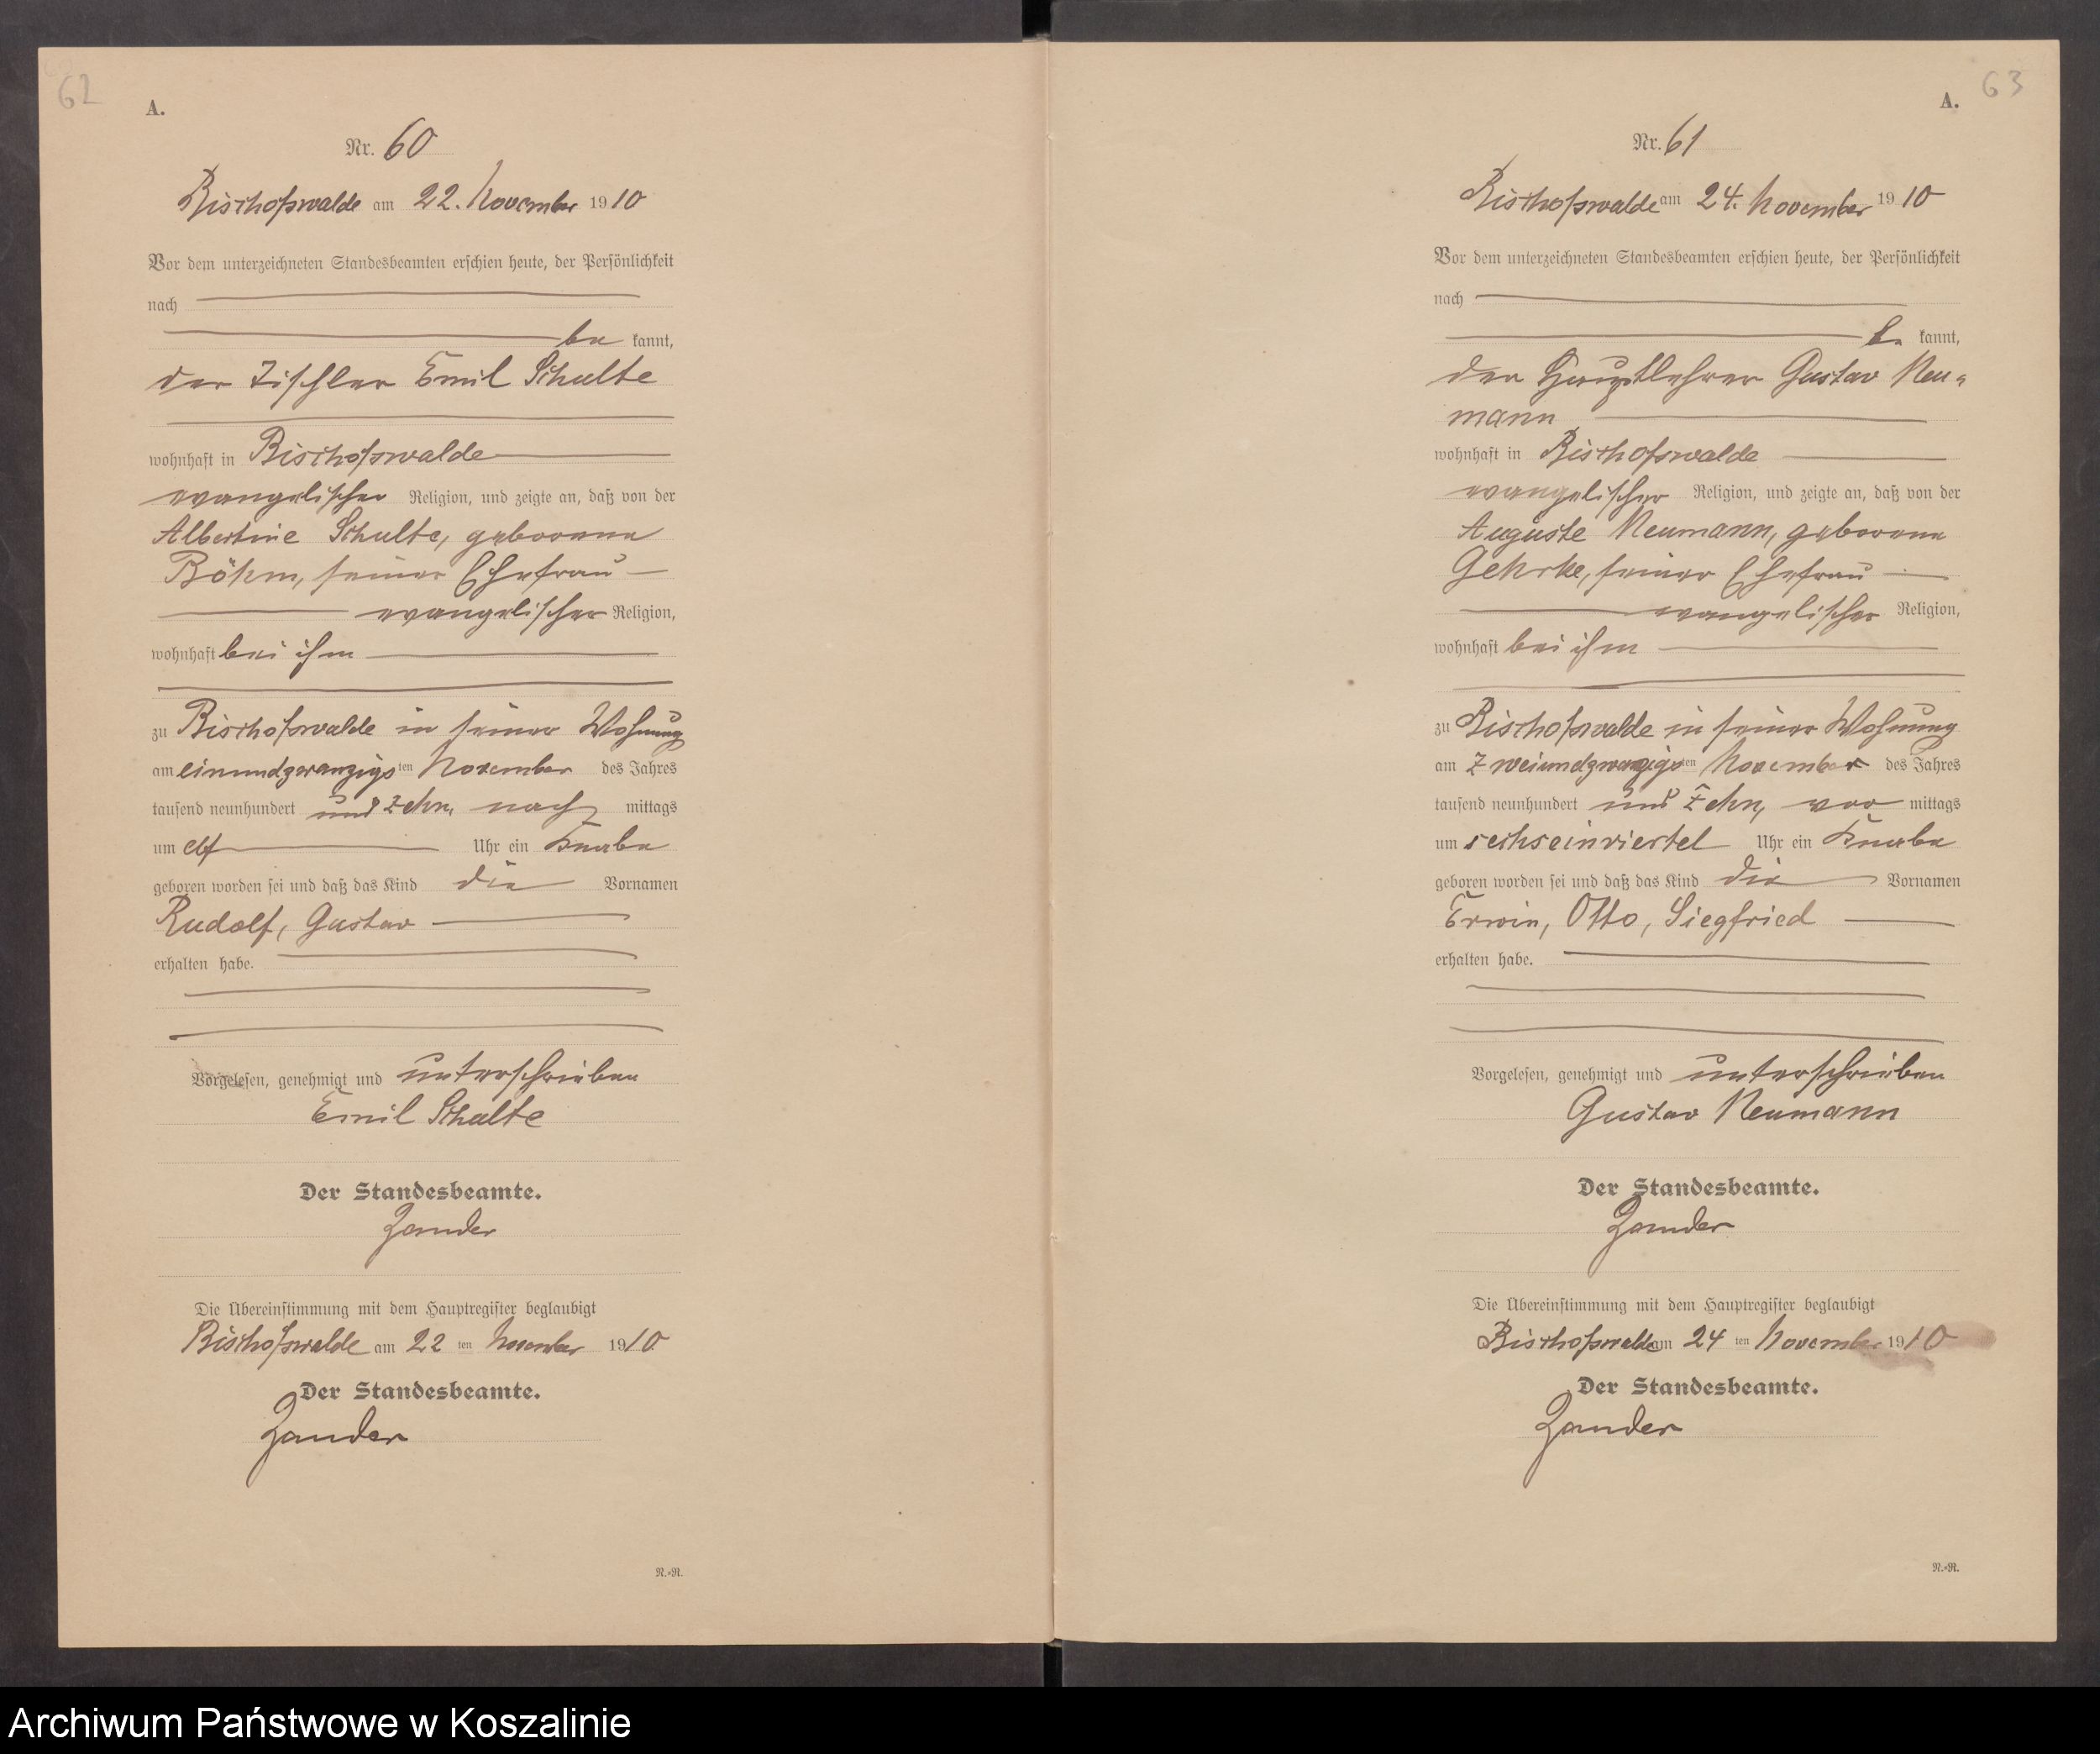 62
A.
Nr. 60
Bischofswalde am 22. November 1910
Vor dem unterzeichneten Standesbeamten erschien heute, der Persönlichkeit
nach
be kannt,
der Tischler Emil Schulte
wohnhaft in Bischofswalde
evangelischer Religion, und zeigte an, daß von der
Albertine Schulte, geborene
Böhm, seiner Ehefrau
evangelischer Religion,
wohnhaft bei ihm
zu Bischofswalde in seiner Wohnung
am einundzwanzigsten November des Jahres
tausend neunhundert und zehn, nach mittags
um elf Uhr ein Knabe
geboren worden sei und daß das Kind die Vornamen
Rudolf, Gustav
erhalten habe.
Vorgelesen, genehmigt und unterschrieben
Emil Schulte
Der Standesbeamte.
Zander
Die Übereinstimmung mit dem Hauptregister beglaubigt
Bischofswalde am 22 ten November 1910
Der Standesbeamte.
Zander
N.=R.
63
A.
Nr. 61
Bischofswalde am 24. November 1910
Vor dem unterzeichneten Standesbeamten erschien heute, der Persönlichkeit
nach
be kannt,
der Hauptlehrer Gustav Neu=
mann
wohnhaft in Bischofswalde
evangelischer Religion, und zeigte an, daß von der
Auguste Neumann, geborene
Gehrke, seiner Ehefrau
evangelischer Religion,
wohnhaft bei ihm
zu Bischofswalde in seiner Wohnung
am zweiundzwanzigsten November des Jahres
tausend neunhundert und zehn, vor mittags
um sechseinviertel Uhr ein Knabe
geboren worden sei und daß das Kind die Vornamen
Erwin, Otto, Siegfried
erhalten habe.
Vorgelesen, genehmigt und unterschrieben
Gustav Neumann
Der Standesbeamte.
Zander
Die Übereinstimmung mit dem Hauptregister beglaubigt
Bischofswalde am 24 ten November 1910
Der Standesbeamte.
Zander
N.=R.
Archiwum Państwowe w Koszalinie